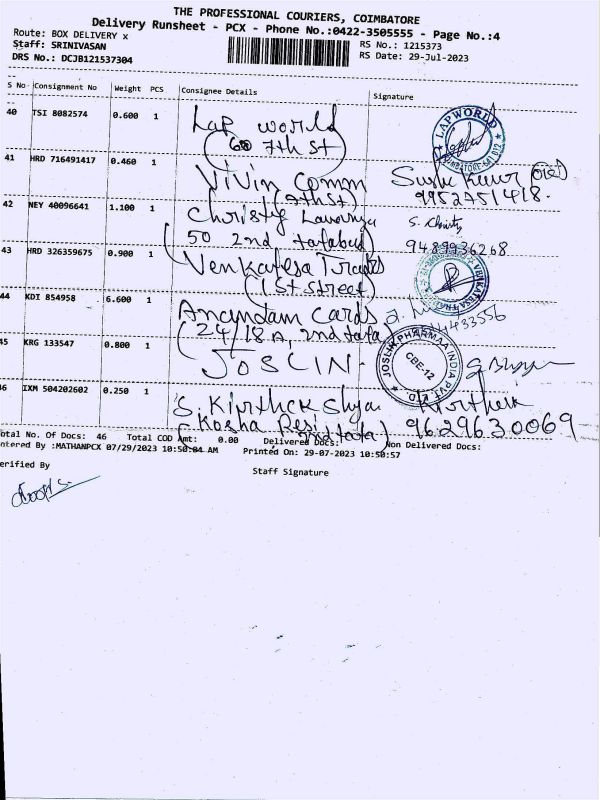 THE PROFESSIONAL COURIERS, COIMBATORE
Delivery Runsheet - PCX - Phone No.:0422-3505555 - Page No.:4
Route: BOX DELIVERY x
RS No.: 1215373
Staff: SRINIVASAN
RS Date: 29-Jul-2023
DRS No.: DCJB121537304
S No Consignment No Weight PCS Consignee Details Signature
40 TSI 8082574 0.600 1 Lap world
(60 7th st)
LAPWORLD
COIMBATORE-641 012
41 HRD 716491417 0.460 1 ViVin Comm
(7th st)
9952751418.
42 NEY 40096641 1.100 1 Christy Lavanya
(50 2nd tatabad)
S. Christy
9489936268
43 HRD 326359675 0.900 1 Venkatesa Trades
(1st street)
44 KDI 854958 6.600 1 Anandam Cards
(24/18A, 2nd tata)
45 KRG 133547 0.800 1 JOSLIN
JOSLIN PHARMAA INDIA PVT. LTD.
CBE-12
46 IXM 504202602 0.250 1 S. Kirthck Shya
(Kosha Resi
2nd tata)
9629630069
otal No. Of Docs: 46 Total COD Amt: 0.00 Delivered Docs: Non Delivered Docs:
ntered By :MATHANPCX 07/29/2023 10:50:04 AM Printed On: 29-07-2023 10:50:57
erified By
Staff Signature